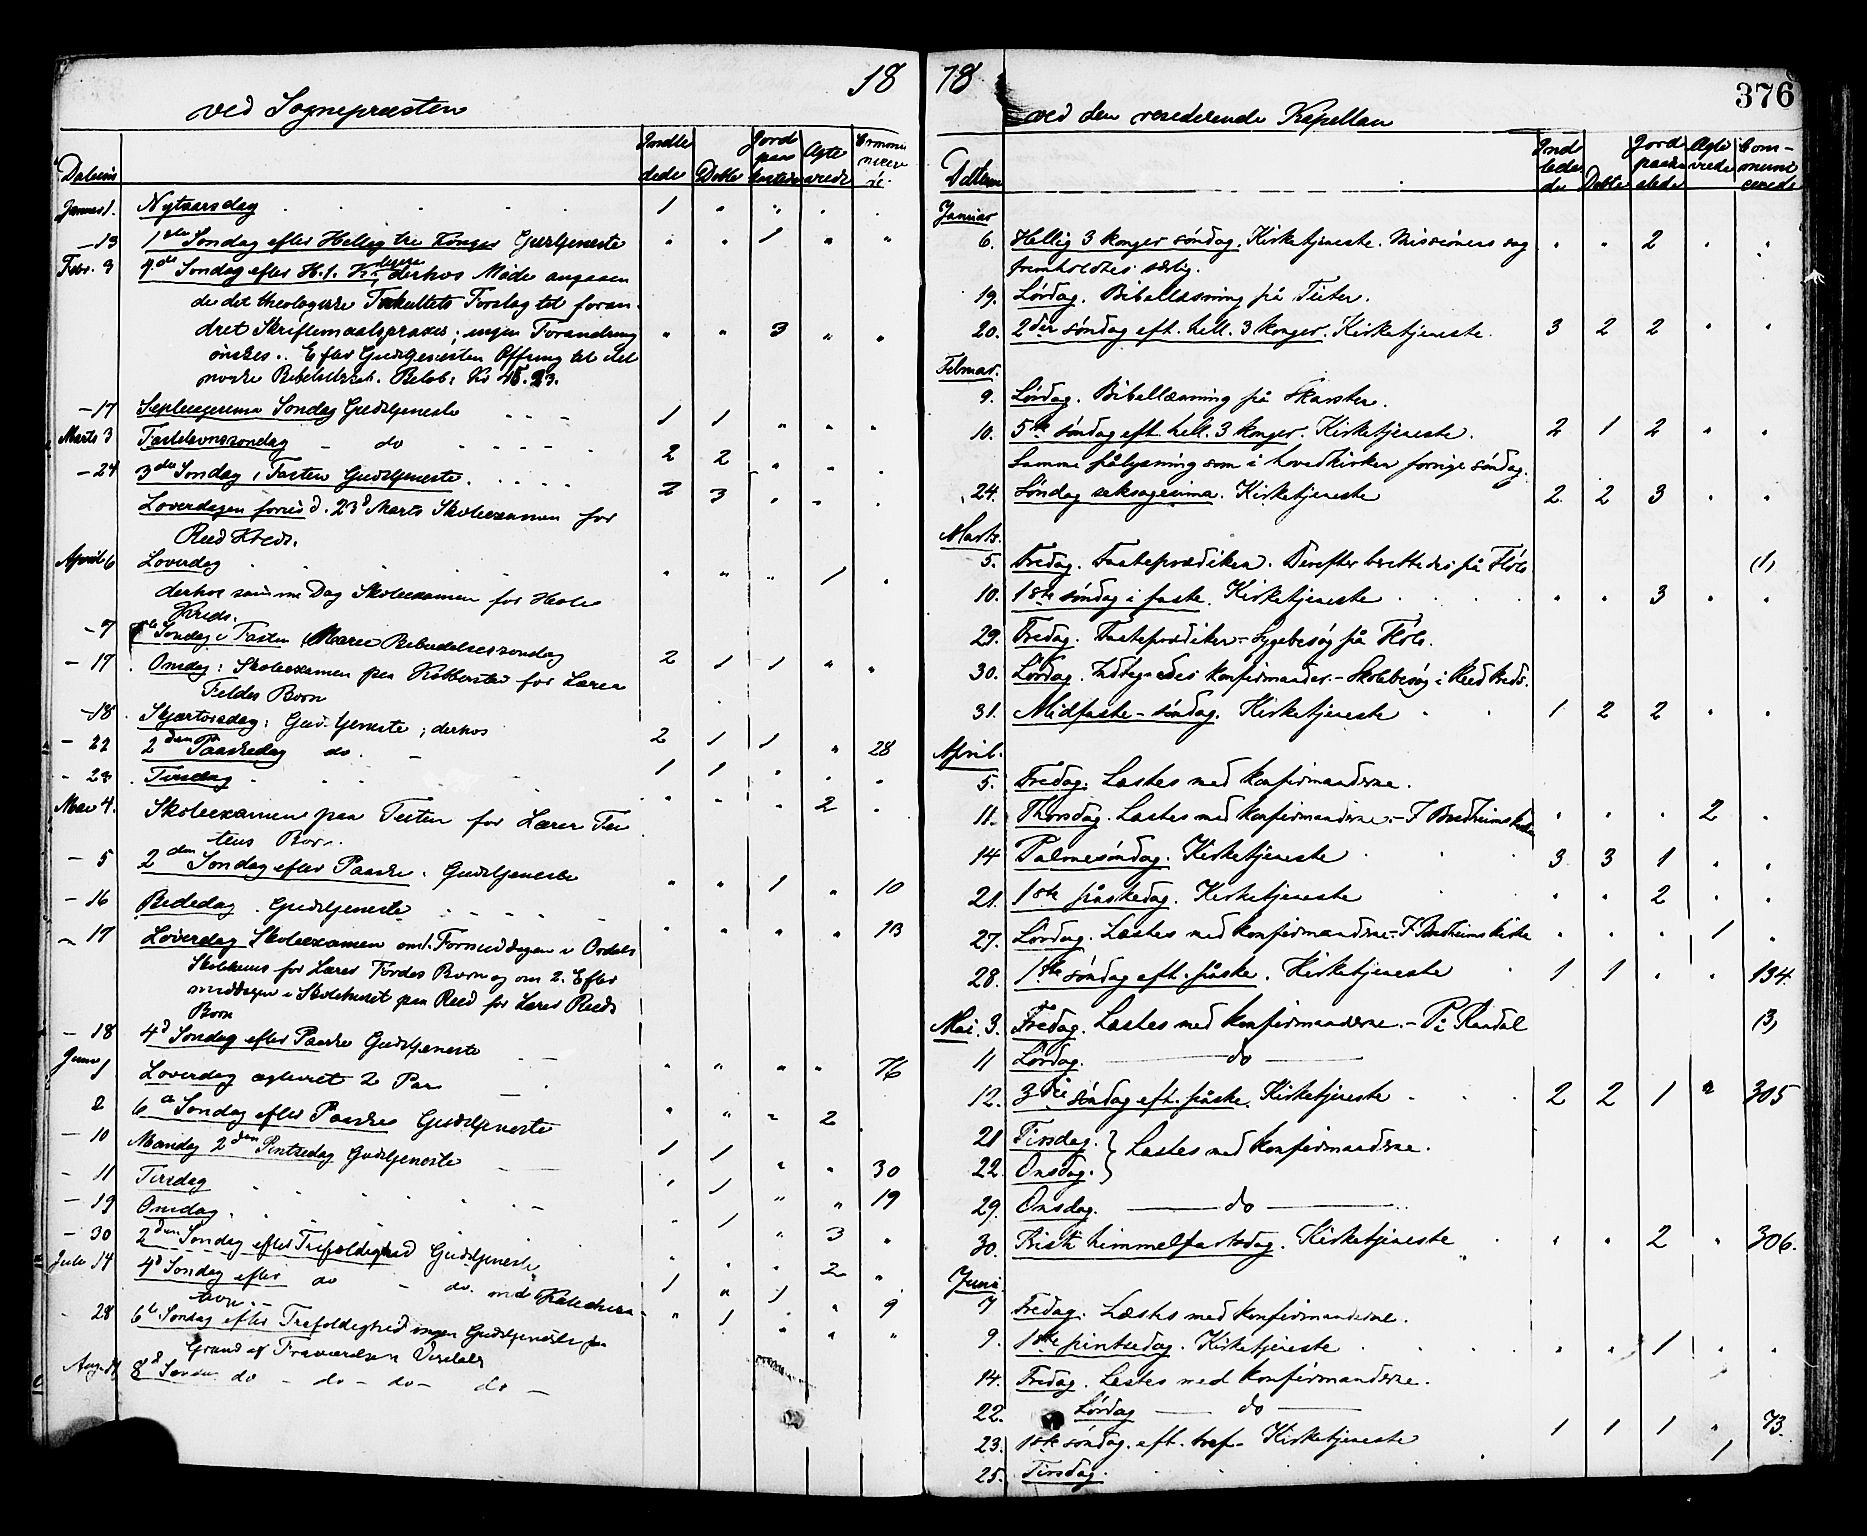 18
ved Sognepræsten
Datum
Indle dede
Døbte
Jord paa kastede
Ægte viede
Commu nicere de
Januar 1. Nytaarsdag 1 " " " "
- 13 1ste Søndag efter Hellig tre Konger Gudstjeneste " " 1 " "
Febr. 3 4de Søndag efter H. 3. K. derhos Møde angaaen
de det theologiske Facultets Forslag til foran-
dret Skriftemaalspraxis; ingen Forandring " " 3 " "
ønskes. Efter Gudstjenesten Offring til det
norske Bibelselskab. Beløb: Kr 45.23.
- 17 Septuagesima Søndag Gudstjeneste 1 1 " " "
Marts 3 Fastelavnssøndag - do 2 2 " " "
- 24 3die Søndag i Fasten Gudstjeneste. 2 3 " " "
Løverdagen forud d. 23de Marts Skoleexamen for
Reed Kreds.
April 6 Løverdag " " " 1 "
derhos samme Dag Skoleexamen for Hole
Kreds.
- 7 Søndag i Fasten Mariæ Bebudelsessøndag 2 1 1 " "
- 17 Onsdag: Skoleexamen paa for Lærer
Børn
- 18 Skjærtorsdag: Gudstjeneste; derhos 2 1 1 " 28
- 22 2den Paaskedag do. 1 1 " " "
- 23 Tirsdag " " " 2 "
Mai 4. Skoleexamen paa Teiten for Lærer Tei
tens Børn.
- 5 2den Søndag efter Paaske. Gudstjeneste " " 1 " 10
- 16 Bededag. Gudstjeneste " " " " 13
- 17 Løverdag Skoleexamen om Formiddagen i
Skolehuus for Lærer Førdes Børn og om 2. Efter
middagen i Skolehuset paa Reed for Lærer Reeds
Børn
- 18 4d Søndag efter Paaske Gudstjeneste " " " " 76
Juni 1 Løverdag ægteviet 2 Par " " " 2
2 6te Søndag efter Paaske Gudstjeneste 1 1 " " 30
- 10 Mandag 2den Pintsedag Gudstjeneste " 1 " " 19
- 11 Tirsdag " 1 " 3 "
- 19 Onsdag " " " 2 "
- 30 2den Søndag efter Trefoldighed Gudstjeneste 1 " 1 " 9
Julii 14 4d Søndag efter do - do. med Katechisa
tion. " 1 " " "
- 28 6te Søndag efter Trefoldighed ingen Gudstjeneste paa
Grund af Fraværelse
Aug. 8d Søndag do - do - do - do -
78
376
ved den residerende Kapellan
Datum
Ind lede de
Døbte
Jord paaka stede
Ægte viede
Com- muni cerede
Januar
6. Hellig 3 konger søndag. Kirketjeneste. Missionens sag " " 2 " "
fremholdtes særlig.
19. Lørdag. Bibellæsning på Teiten.
20. 2den søndag eft. hell. 3 konger. Kirketjeneste. 3 2 2 " "
Februar.
9. Lørdag. Bibellæsning på Skarsten.
10. 5te søndag eft. hell. 3 konger. Kirketjeneste. 2 1 2 " "
Samme pålysning som i hovedkirken forrige søndag.
24. Søndag seksagesima. Kirketjeneste 2 2 3 " "
Marts.
5. Fredag. Fasteprædiken. Derefter berettedes på Flølo (1)
10. 1ste søndag i faste. Kirketjeneste " " 3 " "
29. Fredag. Fasteprædiken - Sygebesøg på Flølo.
30. Lørdag. Indtegnedes konfirmander. - Skolebesøg i Reed kreds.
31. Midfaste-søndag. Kirketjeneste 1 2 2 " "
April.
5. Fredag. Læstes med konfirmanderne.
11. Thorsdag. Læstes med konfirmanderne. - I Bredheims kirke " " " 2 "
14 Palmesøndag. Kirketjeneste 3 3 1 " "
21. 1ste påskedag. Kirketjeneste " " 2 " "
27. Lørdag. Læstes med konfirmanderne. - I Bredheims kirke " " " 1 "
28. 1ste søndag eft. påske. Kirketjeneste 1 1 " " 134.
Mai. 3. Fredag. Læstes med konfirmanderne. - På Randal (3)
11 Lørdag. do
12. 3die søndag eft. påske. Kirketjeneste 2 2 1 " 305
21 Tirsdag. } Læstes med konfirmanderne.
22. Onsdag. }
29. Onsdag. do
30. Kristi himmelfartsdag. Kirketjeneste " " 2 " 306.
Juni.
7 Fredag. Læstes med konfirmanderne.
9. 1ste pintsedag. Kirketjeneste " " 1 " "
14. Fredag. Læstes med konfirmanderne.
22. Lørdag do
23. 1ste søndag eft. tref. Kirketjeneste 1 1 1 " 73.
25. Tirsdag. 1